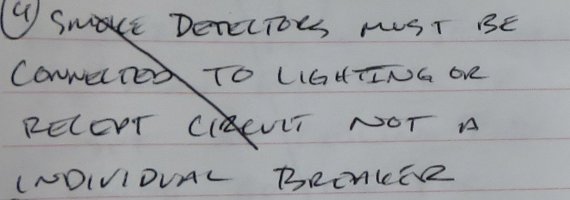 4 SMOKE DETECTORS MUST BE
CONNECTED TO LIGHTING OR
RECEPT CIRCUIT NOT A
INDIVIDUAL BREAKER